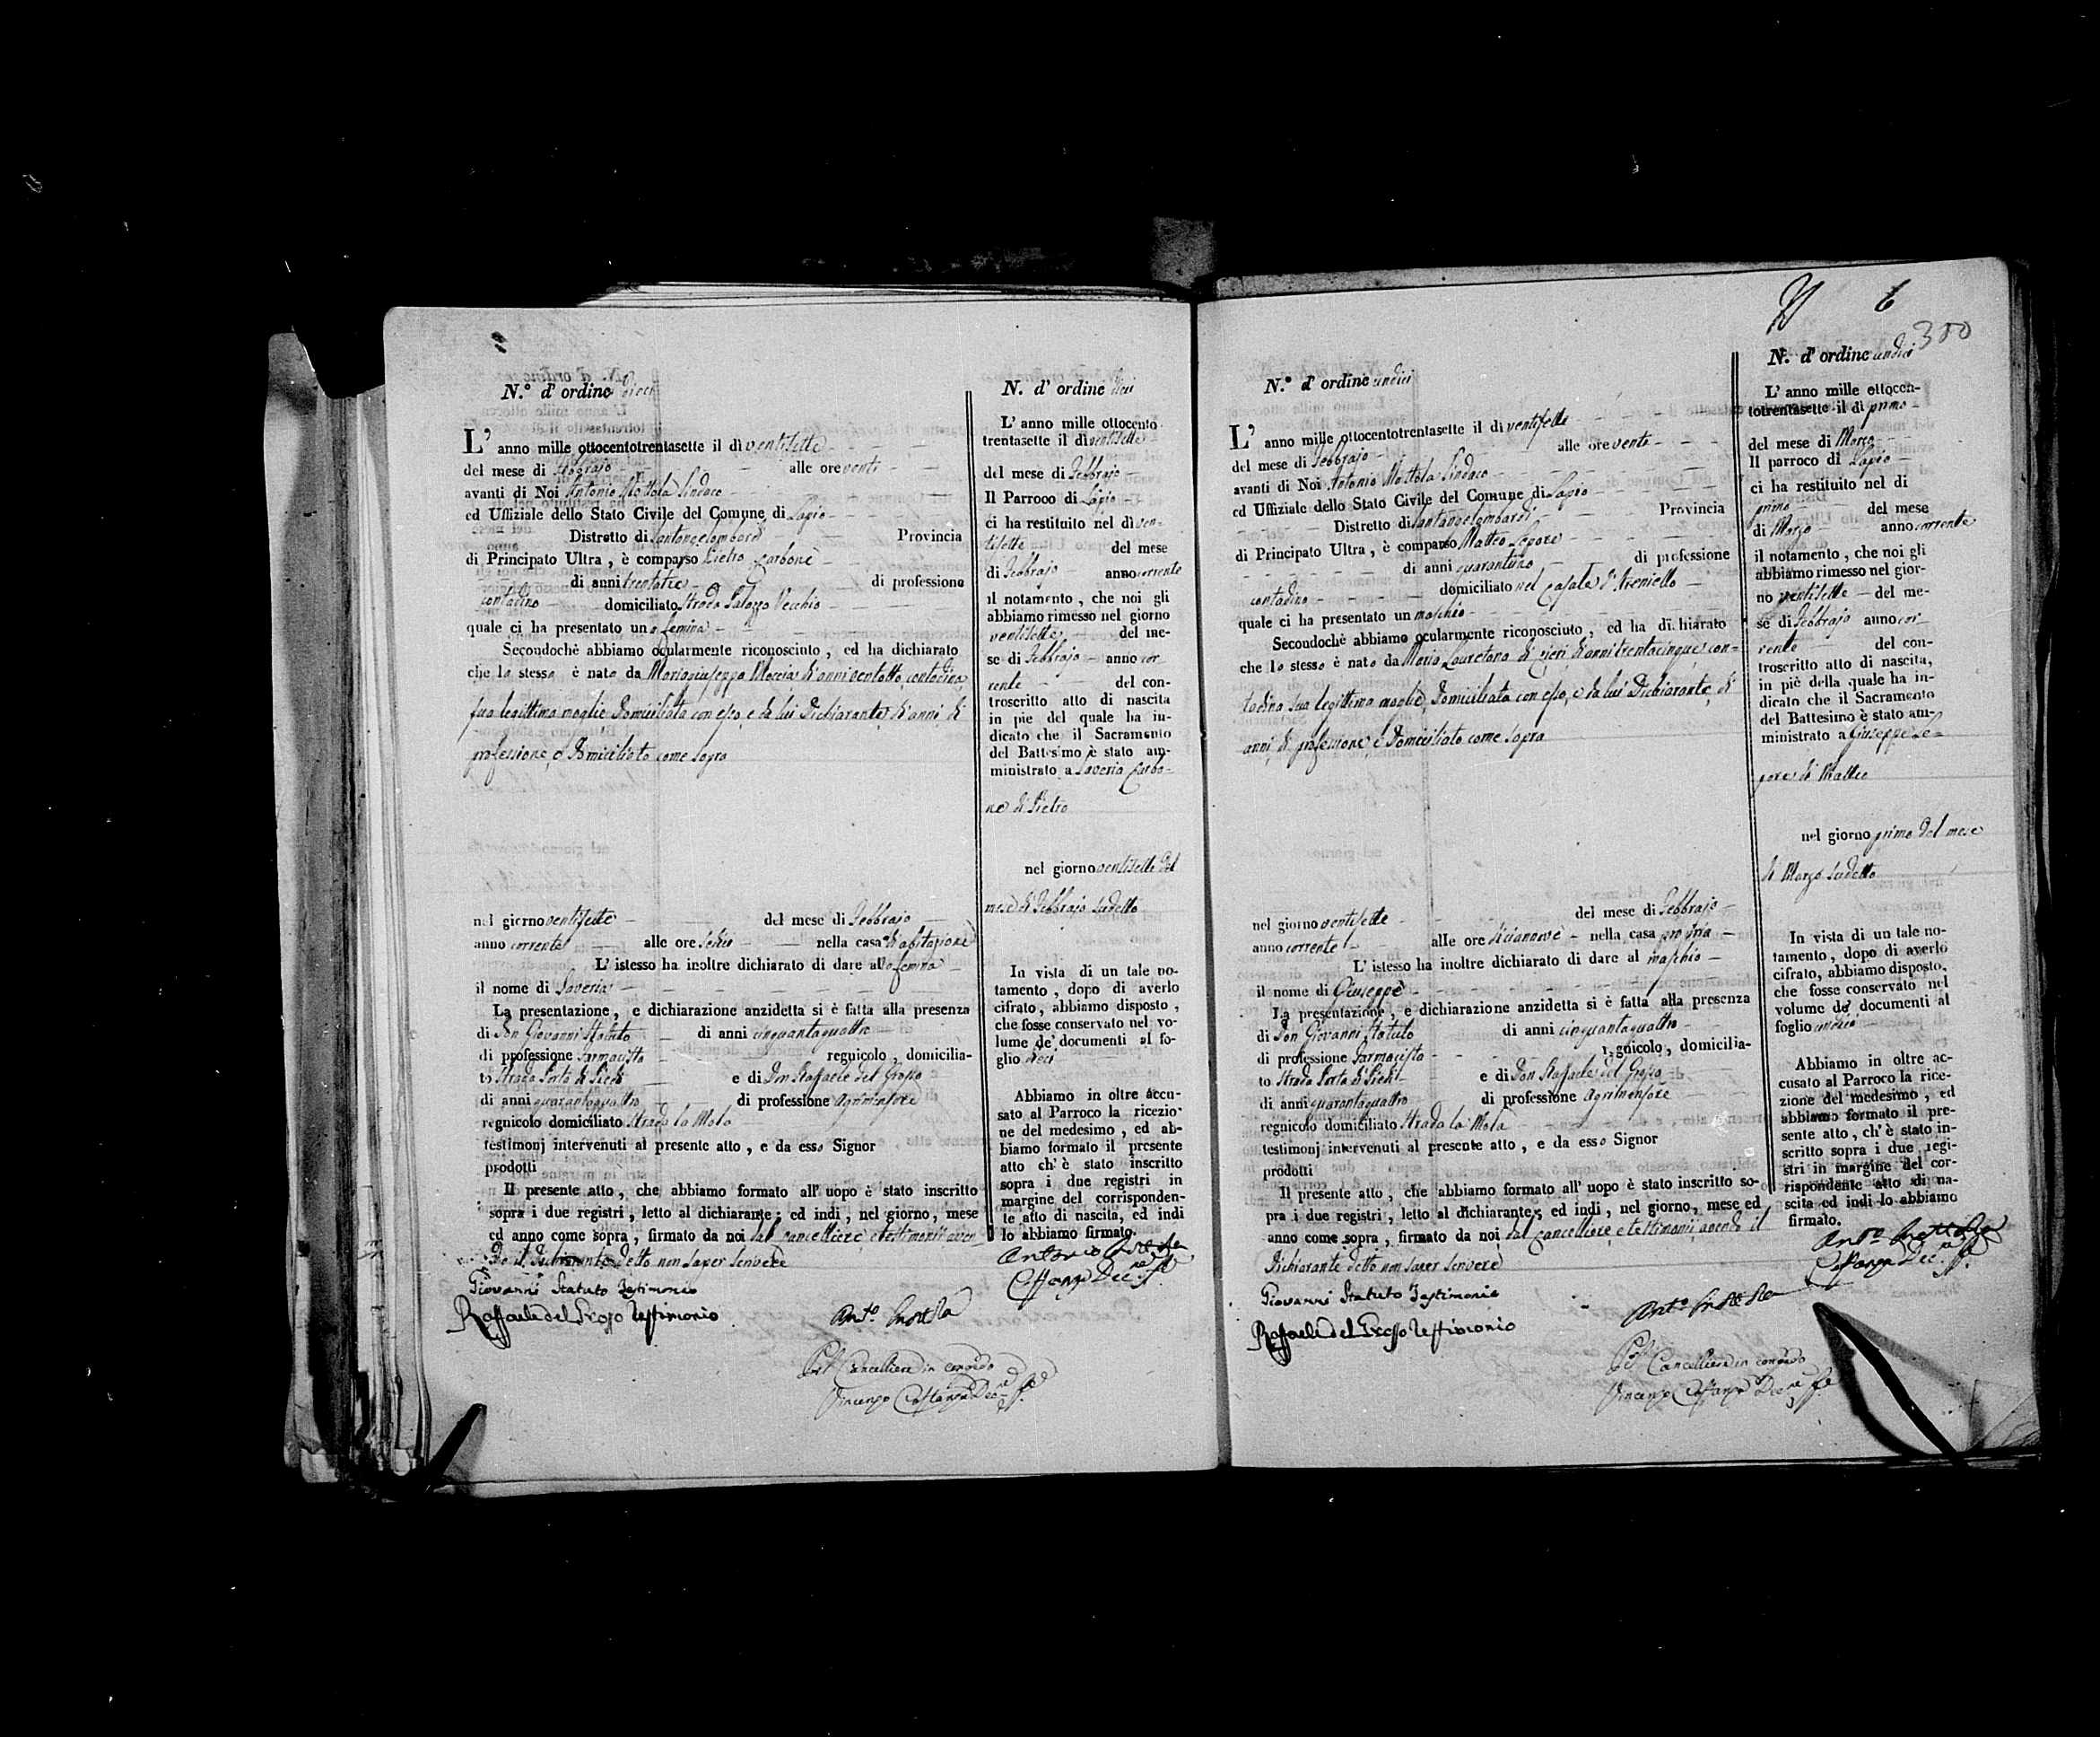 N.° d'ordine dieci
L'anno mille ottocentotrentasette il dì ventisette
del mese di Febbrajo alle ore venti
avanti di Noi Antonio Mottola Sindaco
ed Uffiziale dello Stato Civile del Comune di Lapio
Distretto di Santangelombardi Provincia
di Principato Ultra, è comparso Pietro Carbone
di anni trentatre di professione
contadino domiciliato Strada Palazzo Vecchio
quale ci ha presentato una femina
Secondochè abbiamo ocularmente riconosciuto, ed ha dichiarato
che la stessa è nata da Mariagiuseppa Moccia di anni ventotto, contadina,
sua legittima moglie domiciliata con esso, e da lui Dichiarante, di anni, di
professione, e Domiciliato come sopra
nel giorno ventisette del mese di Febbrajo
anno corrente alle ore sedici nella casa di abitazione
L'istesso ha inoltre dichiarato di dare alla femina
il nome di Saveria
La presentazione, e dichiarazione anzidetta si è fatta alla presenza
di Don Giovanni Statuto di anni cinquantaquattro
di professione Farmacista regnicolo, domicilia-
to Strada Porta di Piedi e di Don Raffaele del Grosso
di anni quarantaquattro di professione Agrimensore
regnicolo domiciliato Strada la Mola
testimonj intervenuti al presente atto, e da esso Signor
prodotti
Il presente atto, che abbiamo formato all'uopo è stato inscritto
sopra i due registri, letto al dichiarante; ed indi, nel giorno, mese
ed anno come sopra, firmato da noi dal cancelliere, e testimonii aven-
do il dichiarante detto non saper scrivere
Giovanni Statuto Testimonio
Raffaele del Grosso Testimonio
Ant.° Mottola
Pel Cancelliere in congedo
Vincenzo
N. d'ordine dieci
L'anno mille ottocento
trentasette il dì ventisette
del mese di Febbrajo
Il Parroco di Lapio
ci ha restituito nel dì ven-
tisette del mese
di Febbrajo anno corrente
il notamento, che noi gli
abbiamo rimesso nel giorno
ventisette del me-
se di Febbrajo anno cor-
rente del con-
troscritto atto di nascita
in pie del quale ha in-
dicato che il Sacramento
del Battesimo è stato am-
ministrato a Saveria Carbo-
ne di Pietro
nel giorno ventisette del
mese di Febbrajo sudetto
In vista di un tale no-
tamento, dopo di averlo
cifrato, abbiamo disposto,
che fosse conservato nel vo-
lume de' documenti al fo-
glio dieci
Abbiamo in oltre accu-
sato al Parroco la ricezio-
ne del medesimo, ed ab-
biamo formato il presente
atto ch'è stato inscritto
sopra i due registri in
margine del corrisponden-
te atto di nascita, ed indi
lo abbiamo firmato.
Antonio Mottola
6
380
N.° d'ordine undici
L'anno mille ottocentotrentasette il dì ventisette
del mese di Febbrajo alle ore venti
avanti di Noi Antonio Mottola Sindaco
ed Uffiziale dello Stato Civile del Comune di Lapio
Distretto di Santangelombardi Provincia
di Principato Ultra, è comparso Matteo Lepore
di anni quarantuno di professione
contadino domiciliato nel Casale di Areniello
quale ci ha presentato un maschio
Secondochè abbiamo ocularmente riconosciuto, ed ha dichiarato
che lo stesso è nato da Maria Lauretana di anni trentacinque, con-
tadina sua legittima moglie, Domiciliata con esso, e da lui Dichiarante, di
anni, di professione, e Domiciliato come sopra
nel giorno ventisette del mese di Febbrajo
anno corrente alle ore diciannove nella casa propria
L'istesso ha inoltre dichiarato di dare al maschio
il nome di Giuseppe
La presentazione, e dichiarazione anzidetta si è fatta alla presenza
di Don Giovanni Statuto di anni cinquantaquattro
di professione Farmacista regnicolo, domicilia-
to Strada Porta di Piedi e di Don Raffaele del Grosso
di anni quarantaquattro di professione Agrimensore
regnicolo domiciliato Strada la Mola
testimonj intervenuti al presente atto, e da esso Signor
prodotti
Il presente atto, che abbiamo formato all'uopo è stato inscritto so-
pra i due registri, letto al dichiarante; ed indi, nel giorno, mese ed
anno come sopra, firmato da noi dal cancelliere, e testimonii, avendo il
dichiarante detto non saper scrivere
Giovanni Statuto Testimonio
Raffaele del Grosso Testimonio
Ant.° Mottola
Pel Cancelliere in congedo
Vincenzo
N. d'ordine undici
L'anno mille ottocen-
totrentasette il di primo
del mese di Marzo
Il parroco di Lapio
ci ha restituito nel di
primo del mese
di Marzo anno corrente
il notamento, che noi gli
abbiamo rimesso nel gior-
no ventisette del me-
se di Febbrajo anno cor-
rente del con-
troscritto atto di nascita,
in piè della quale ha in-
dicato che il Sacramento
del Battesimo è stato am-
ministrato a Giuseppe Le-
pore di Matteo
nel giorno primo del mese
di Marzo sudetto
In vista di un tale no-
tamento, dopo di averlo
cifrato, abbiamo disposto,
che fosse conservato nel
volume de' documenti al
foglio undici
Abbiamo in oltre ac-
cusato al Parroco la rice-
zione del medesimo, ed
abbiamo formato il pre-
sente atto, ch'è stato in-
scritto sopra i due regi-
stri in margine del cor-
rispondente atto di na-
scita ed indi lo abbiamo
firmato.
Ant.° Mottola